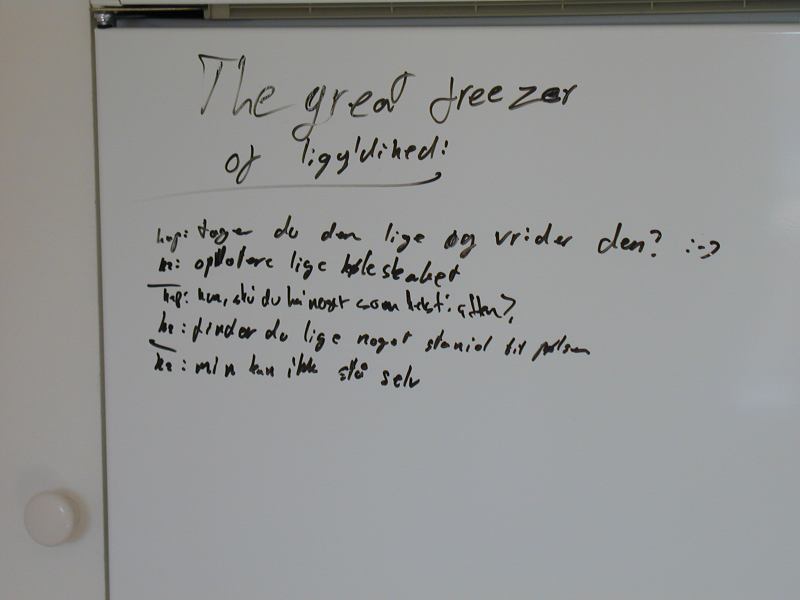 The great freezer
of ligyldihed!
hop: tager du den lige og vrider den? :->
ke: opdatere lige køleskabet
hop: skal du ha' noget som helst i aften?
ke: finder du lige noget staniol til pølsen
ke: min kan ikk stå selv